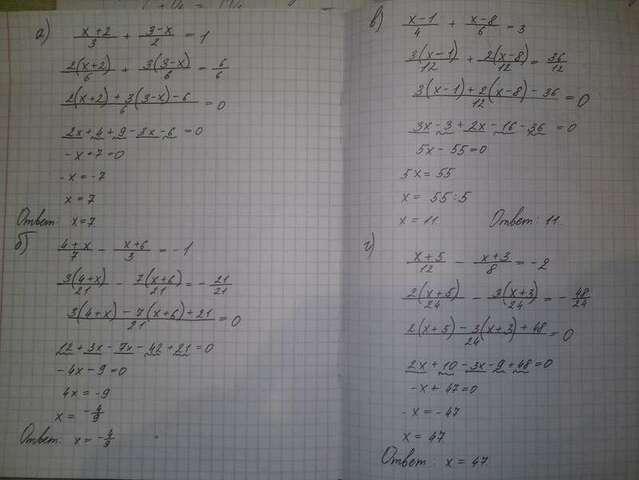 а) (x+2)/3 + (3-x)/2 = 1
2(x+2)/6 + 3(3-x)/6 = 6/6
(2(x+2) + 3(3-x) - 6)/6 = 0
2x+4+9-3x-6 = 0
-x+7=0
-x = -7
x = 7
Ответ: x=7
б) (4+x)/7 - (x+6)/3 = -1
3(4+x)/21 - 7(x+6)/21 = -21/21
(3(4+x) - 7(x+6) + 21)/21 = 0
12+3x-7x-42+21=0
-4x-9=0
4x = -9
x = -4/9
Ответ: x = -4/9
в) (x-1)/4 + (x-8)/6 = 3
3(x-1)/12 + 2(x-8)/12 = 36/12
(3(x-1)+2(x-8)-36)/12 = 0
3x-3+2x-16-36 = 0
5x-55=0
5x = 55
x = 55:5
x = 11 Ответ: 11.
г) (x+5)/12 - (x+3)/8 = -2
2(x+5)/24 - 3(x+3)/24 = -48/24
(2(x+5) - 3(x+3) + 48)/24 = 0
2x+10-3x-9+48=0
-x+47=0
-x = -47
x = 47
Ответ: x = 47